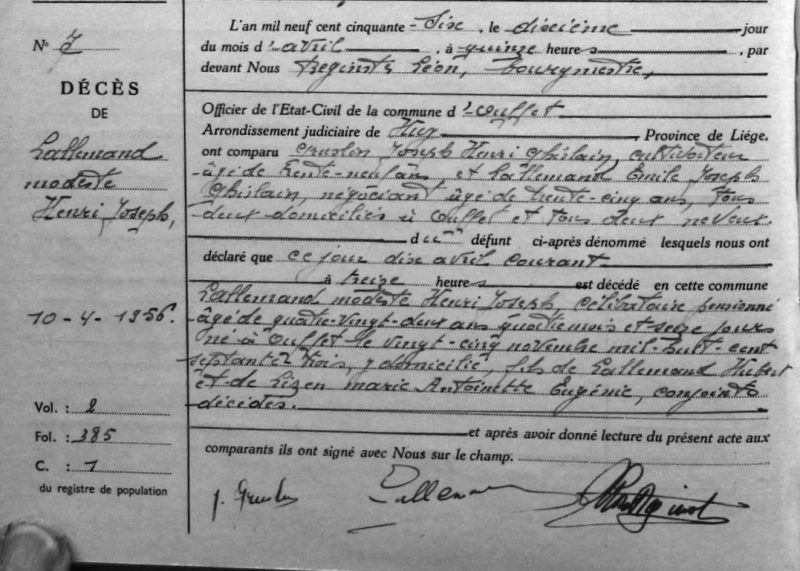 N° 7
DÉCÈS
DE
Lallemand
modeste
Henri Joseph,
10-4-1956.
Vol. : 2
Fol. : 385
C. : 1
du registre de population
L'an mil neuf cent cinquante-six, le dixième jour
du mois d'avril, à quinze heures, par
devant Nous Léon, Bourgmestre,
Officier de l'Etat-Civil de la commune d'Ouffet
Arrondissement judiciaire de Huy, Province de Liége.
ont comparu Joseph Henri Ghislain, cultivateur
âgé de trente-neuf ans, et Lallemand Emile Joseph
Ghislain, négociant âgé de trente-cinq ans, tous
deux domiciliés à Ouffet et tous deux neveux
du défunt ci-après dénommé lesquels nous ont
déclaré que ce jour dix avril courant
à treize heures est décédé en cette commune
Lallemand modeste Henri Joseph, célibataire pensionné
âgé de quatre-vingt-deux ans quatre mois et seize jours
né à Ouffet le vingt-cinq novembre mil-huit-cent
septante trois, y domicilié, fils de Lallemand Hubert
et de Lizen marie Antoinette Eugénie, conjoints
décédés.
et après avoir donné lecture du présent acte aux
comparants ils ont signé avec Nous sur le champ.
Lallemand